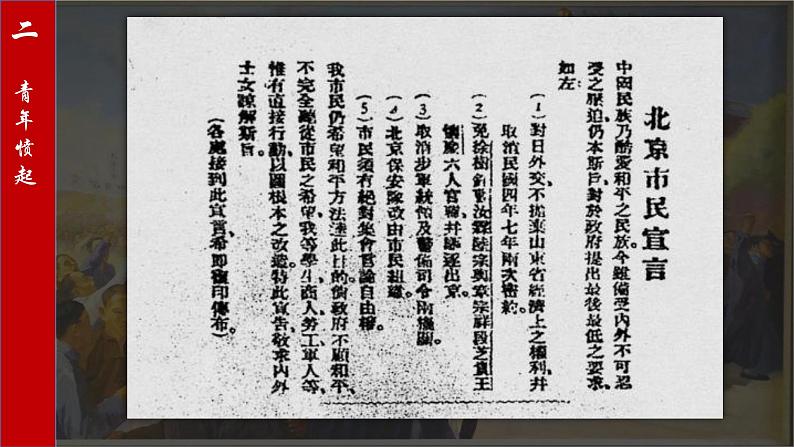 二
青年愤起
北京市民宣言
中國民族乃酷愛和平之民族。今雖備受內外不可忍
受之壓迫、仍本斯旨、對於政府提出最後最低之要求、
如左：
（1）對日外交、不拋棄山東省經濟上之權利、并
取消民國四年七年兩次密約。
（2）免徐樹錚曹汝霖陸宗輿章宗祥段芝貴王
懷慶六人官職、并驅逐出京。
（3）取消步軍統領及警備司令兩機關。
（4）北京保安隊改由市民組織。
（5）市民須有絕對集會言論自由權。
我市民仍希望和平方法達此目的。倘政府不顧和平、
不完全聽從市民之希望、我等學生商人勞工軍人等、
惟有直接行動、以圖根本之改造。特此宣告、敬求內外
士女諒解斯旨。
（各處接到此宣言、希即複印傳布。）